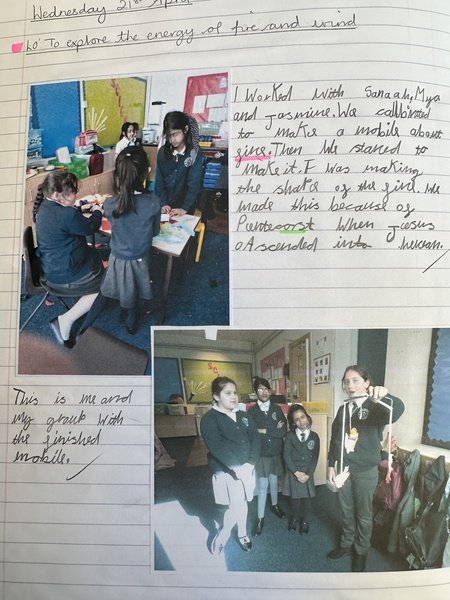 Wednesday 21st April
LO: To explore the energy of fire and wind
I worked with Sanaah, Mya
and Jasmine. We callabirated
to make a mobile about
gire. Then we stared to
make it. I was making
the shape of the fire. We
made this because of
Pentecorst when Jesus
Ascended into hevan.
This is me and
my group with
the finished
mobile.